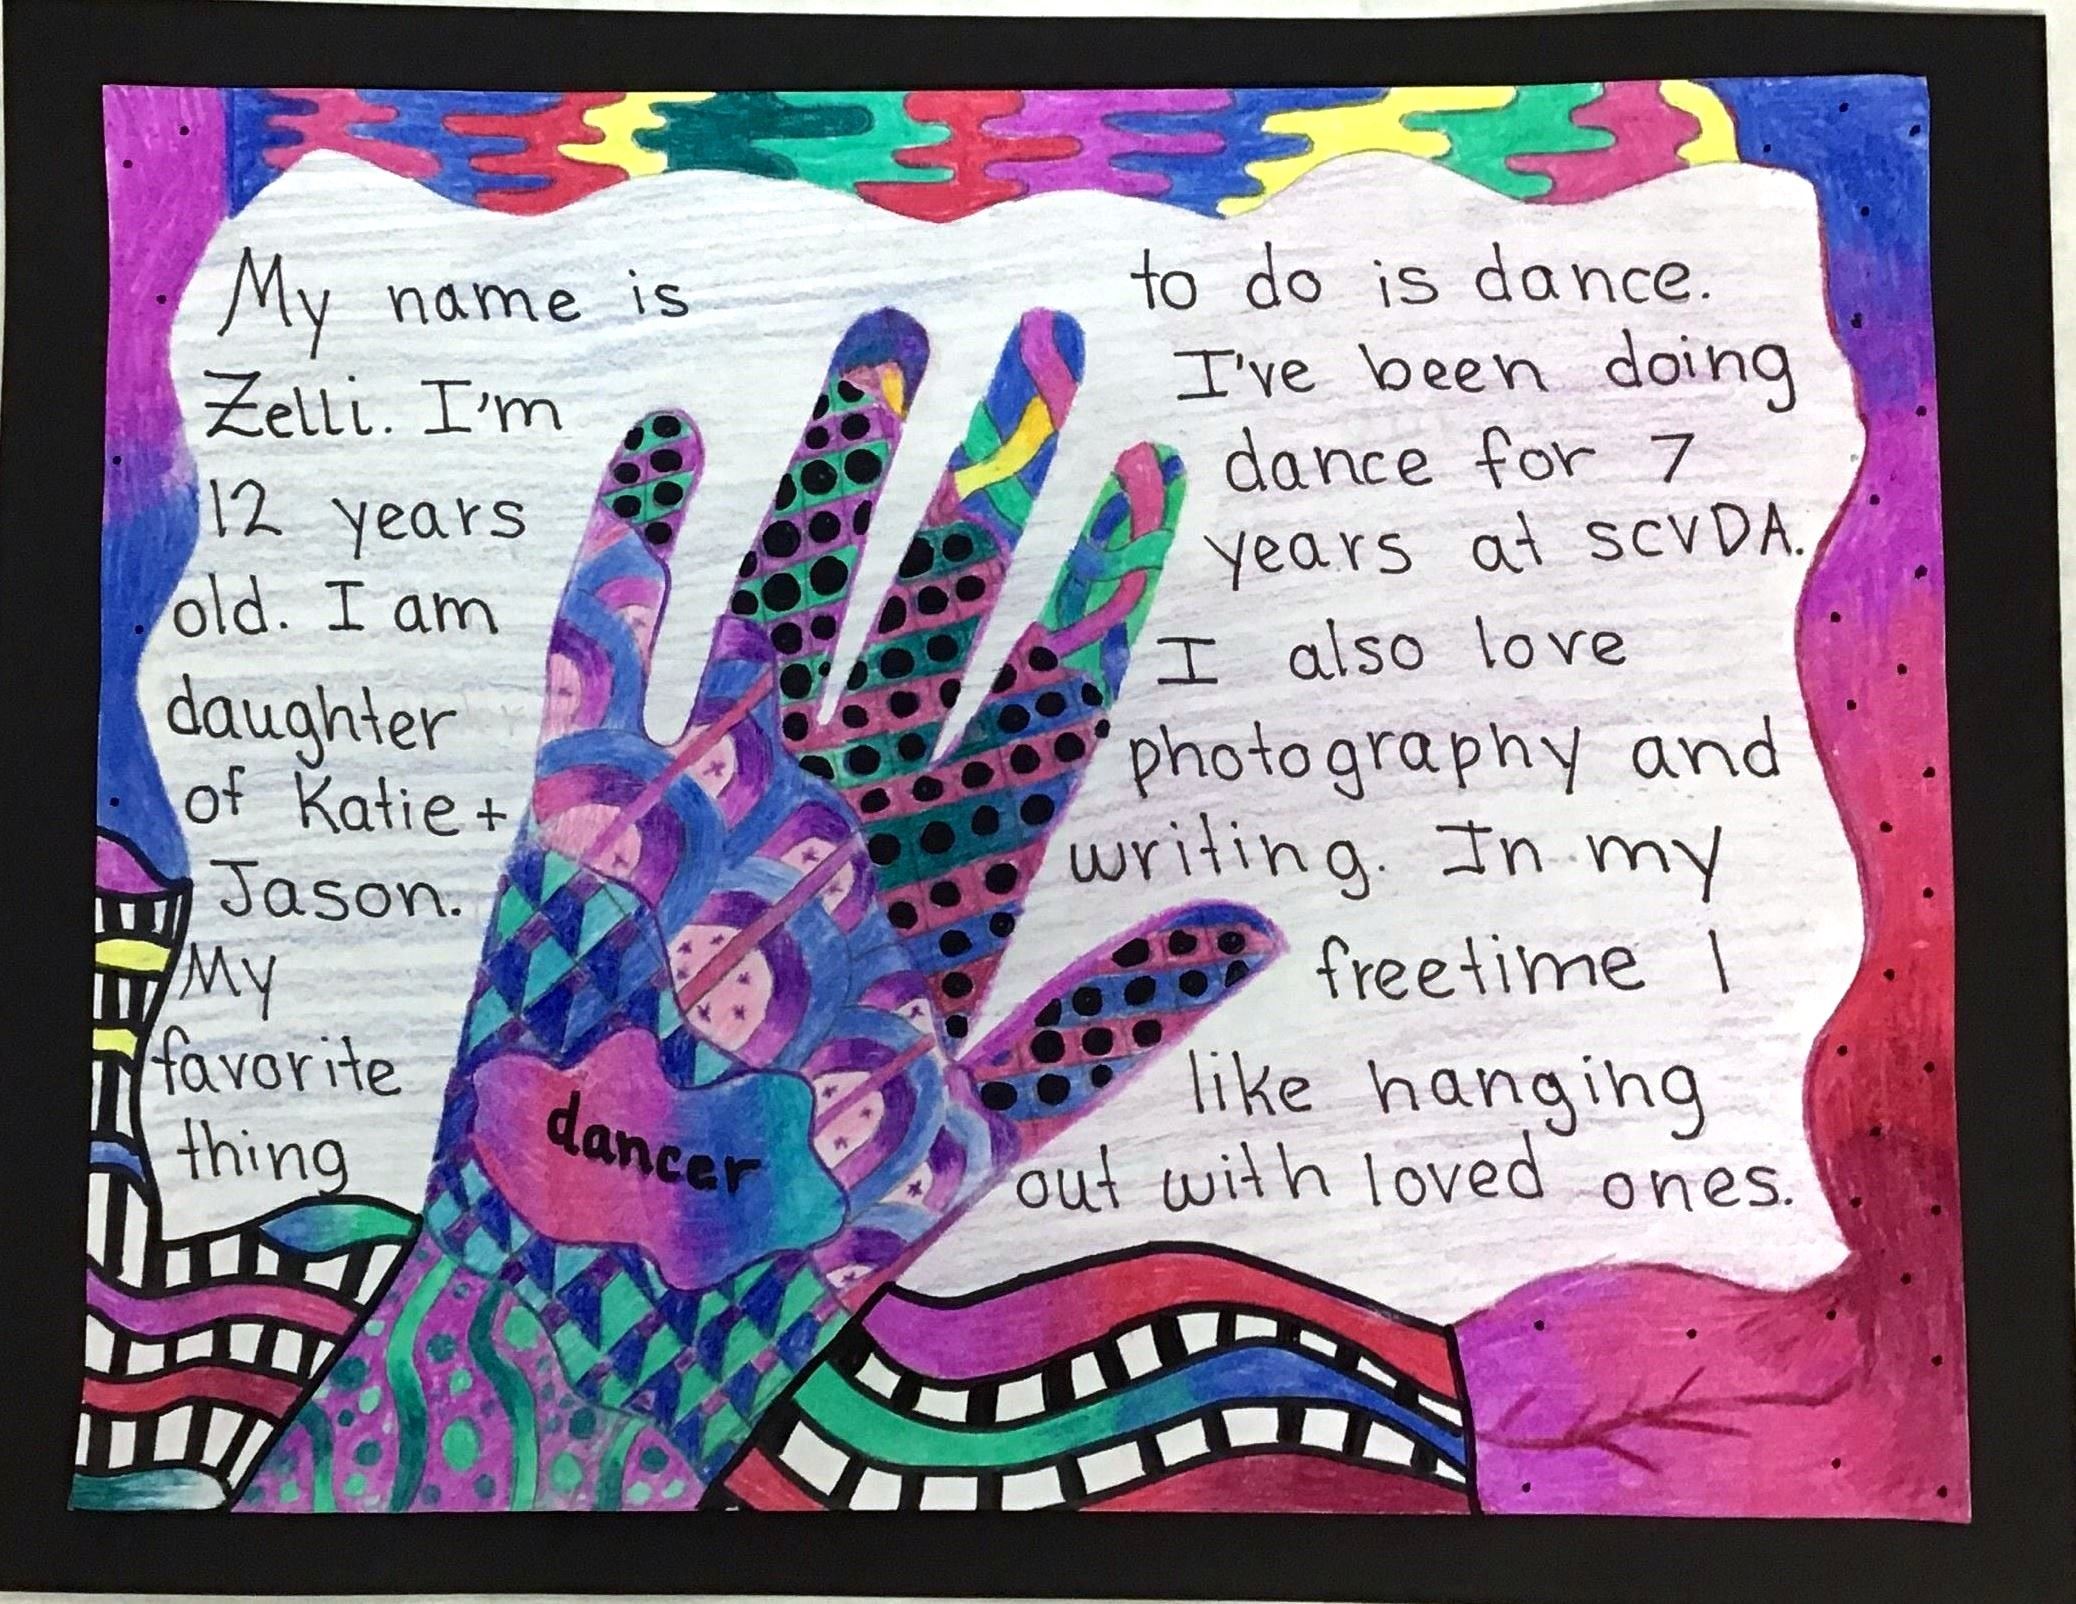 My name is
Zelli. I'm
12 years
old. I am
daughter
of Katie +
Jason.
My
favorite
thing
to do is dance.
I've been doing
dance for 7
years at SCVDA.
I also love
photography and
writing. In my
freetime I
like hanging
out with loved ones.
dancer